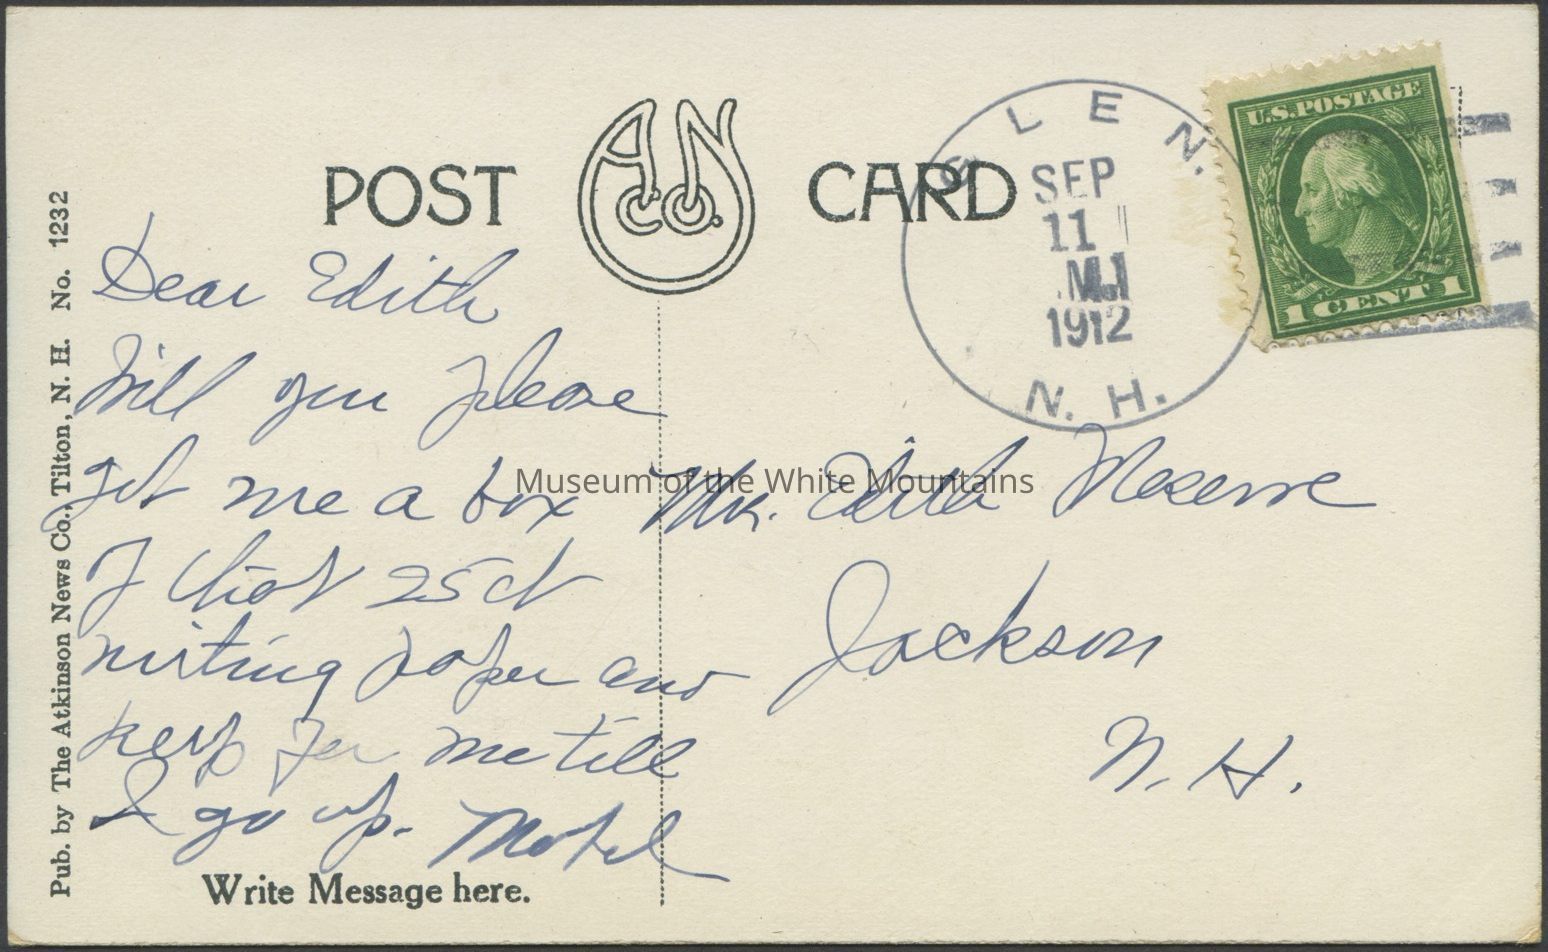 POST CARD
A N Co.
GLEN.
SEP
11
M.
1912
N. H.
U.S. POSTAGE
1 CENT 1
Pub. by The Atkinson News Co., Tilton, N. H. No. 1232
Dear Edith
Will you please
get me a box
of that 25ct
writing paper and
keep for me till
I go up.
Write Message here.
Edith Meserve
Jackson
N. H.
Museum of the White Mountains